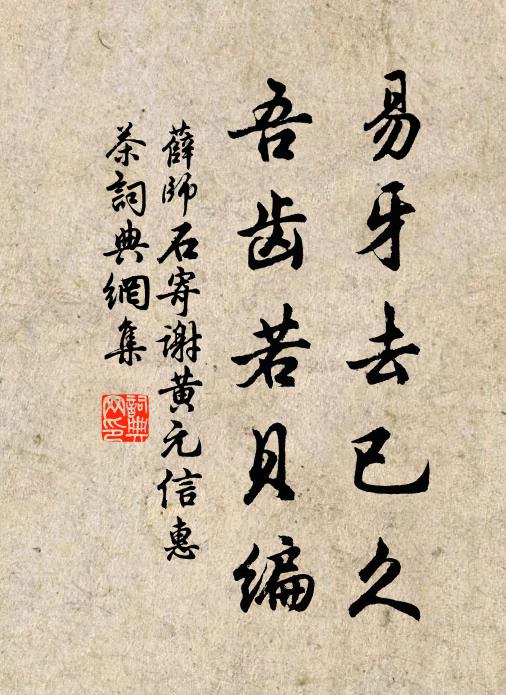 易牙去已久
吾齿若贝编
薛師石寄谢黄元信惠
茶詞典網集
詞典网印